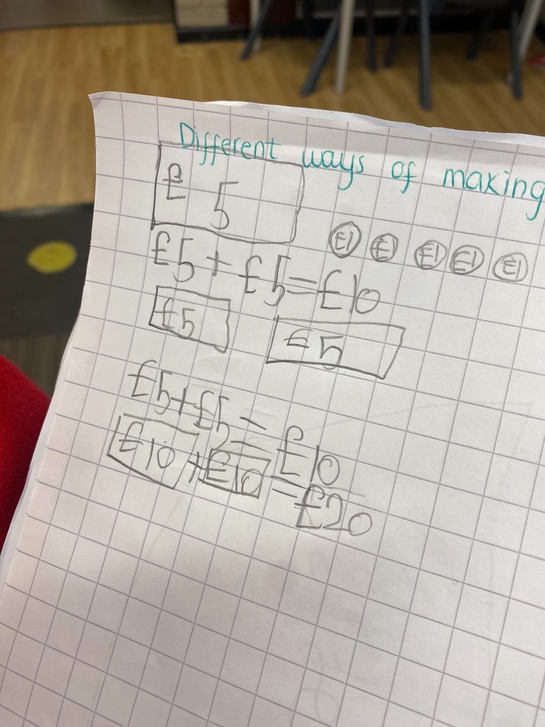 Different ways of making
£ 5
£1 £1 £1 £1 £1
£5 + £5 = £10
£5 £5
£5+£5 = £10
£10 + £10 = £20